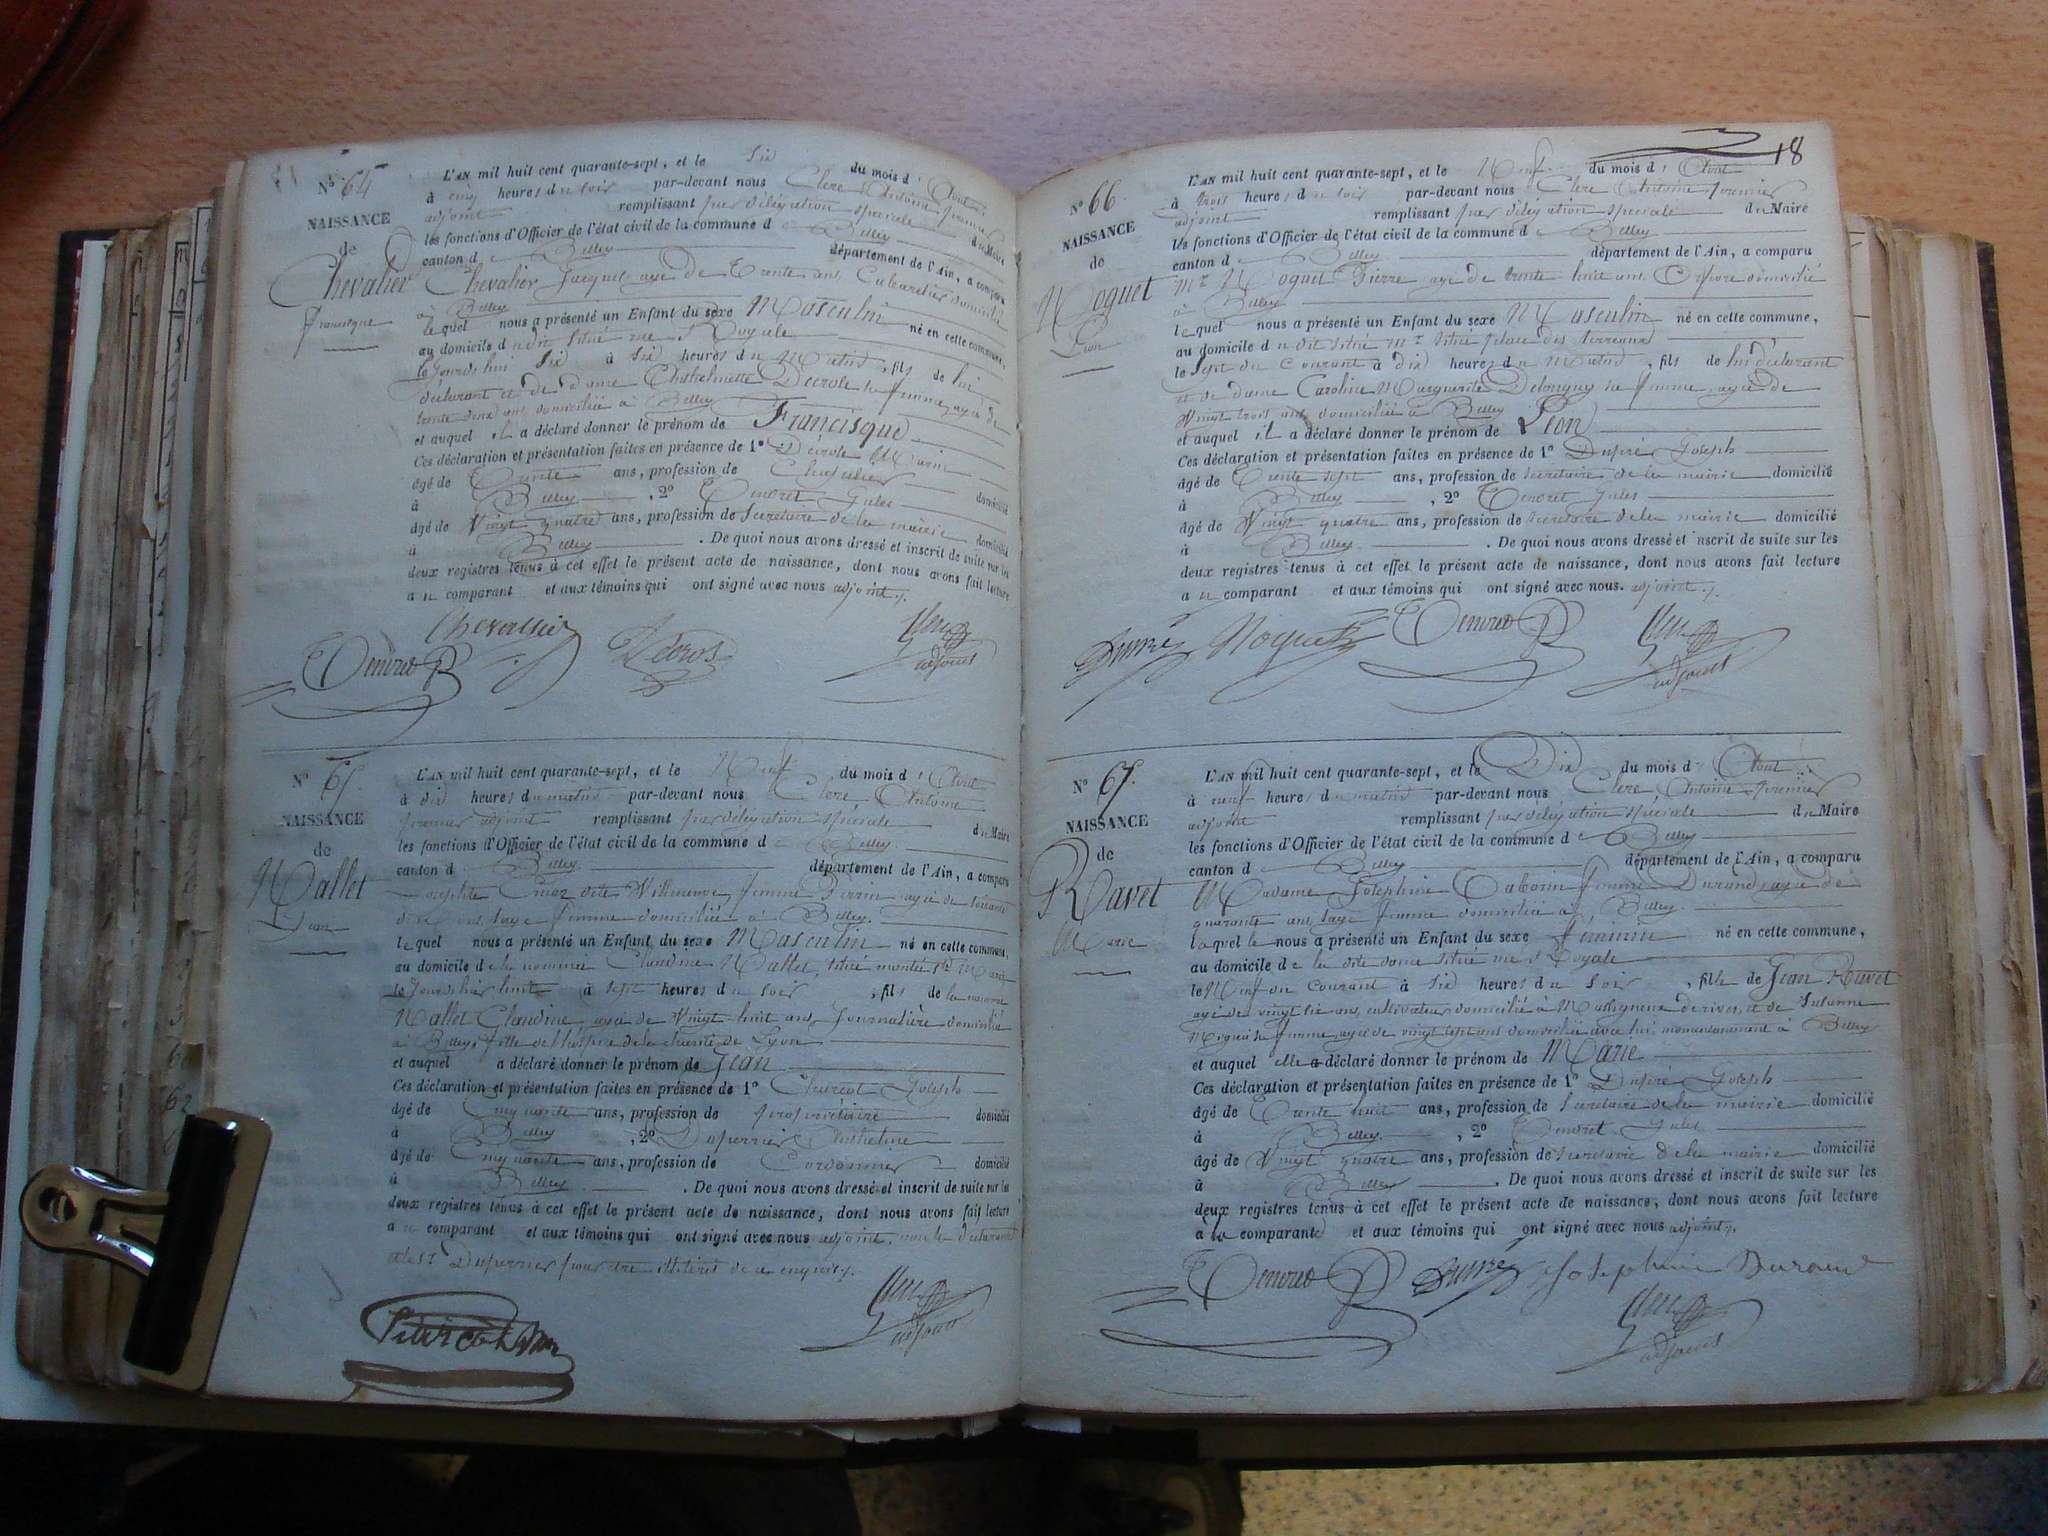 N° 64
NAISSANCE
de
Chevalier
francisque
L'AN mil huit cent quarante-sept, et le Six du mois d'Aout
à cinq heures du soir par-devant nous Clerc Antoine premier
adjoint remplissant par délégation spéciale du Maire
les fonctions d'Officier de l'état civil de la commune de Belley
canton de Belley département de l'Ain, a comparu
Chevalier Jacques agé de trente ans Cabaretier domicilié
à Belley
lequel nous a présenté un Enfant du sexe Masculin né en cette commune,
au domicile du dit situé rue Royale
le jourd'hui six à six heures du Matin, fils de lui
déclarant et de dame Decrole sa femme, agée de
trente deux ans domiciliée à Belley
et auquel il a déclaré donner le prénom de Francisque
Ces déclaration et présentation faites en présence de 1° Décrole
âgé de Trente ans, profession de domicilié
à Belley, 2° Tendret Jules
âgé de Vingt quatre ans, profession de secretaire de la mairie domicilié
à Belley. De quoi nous avons dressé et inscrit de suite sur les
deux registres tenus à cet effet le présent acte de naissance, dont nous avons fait lecture
au comparant et aux témoins qui ont signé avec nous adjoint
Chevallier
Tendret
adjoint
N° 65
NAISSANCE
de
Mallet
Jean
L'AN mil huit cent quarante-sept, et le Neuf du mois d'Aout
à dix heures du matin par-devant nous Clerc, Antoine
premier adjoint remplissant par délégation spéciale du Maire
les fonctions d'Officier de l'état civil de la commune de Belley
canton de Belley département de l'Ain, a comparu
dite Villeneuve femme Perrin agée de soixante
dix ans, sage femme domiciliée à Belley.
lequel nous a présenté un Enfant du sexe Masculin né en cette commune,
au domicile de la nommée Claudine Mallet, situé montée Ste Marie
le jour d'hier huit à sept heures du soir, fils de la nommée
Mallet Claudine agée de Vingt-huit ans, Journalière domiciliée
à Belley, fille de l'hospice de la charité de Lyon
et auquel a déclaré donner le prénom de Jean
Ces déclaration et présentation faites en présence de 1° Joseph
âgé de cinquante ans, profession de propriétaire domicilié
à Belley, 2° Duperrier Anthelme
âgé de cinquante ans, profession de Cordonnier domicilié
à Belley. De quoi nous avons dressé et inscrit de suite sur les
deux registres tenus à cet effet le présent acte de naissance, dont nous avons fait lecture
au comparant et aux témoins qui ont signé avec nous adjoint, non le déclarant
Duperrier pour être illitérés de ce enquis
adjoint
18
N° 66
NAISSANCE
de
Moquet
Léon
L'AN mil huit cent quarante-sept, et le Neuf du mois d'Aout
à trois heures du soir par-devant nous Clerc Antoine premier
adjoint remplissant par délégation spéciale du Maire
les fonctions d'Officier de l'état civil de la commune de Belley
canton de Belley département de l'Ain, a comparu
Mr Moquet Pierre agé de trente huit ans domicilié
à Belley
lequel nous a présenté un Enfant du sexe Masculin né en cette commune,
au domicile du dit situé place des terreaux
le sept du Courant à dix heures du Matin, fils de lui déclarant
et de dame Caroline Marguerite sa femme, agée de
Vingt trois ans domiciliée à Belley
et auquel il a déclaré donner le prénom de Léon
Ces déclaration et présentation faites en présence de 1° Dupré Joseph
âgé de Trente sept ans, profession de secretaire de la mairie domicilié
à Belley, 2° Tendret Jules
âgé de Vingt quatre ans, profession de secretaire de la mairie domicilié
à Belley. De quoi nous avons dressé et inscrit de suite sur les
deux registres tenus à cet effet le présent acte de naissance, dont nous avons fait lecture
au comparant et aux témoins qui ont signé avec nous. adjoint
Dupré Moquet Tendret
adjoint
N° 67.
NAISSANCE
de
Ravet
Marie
L'AN mil huit cent quarante-sept, et le Dix du mois d'Aout
à neuf heures du matin par-devant nous Clerc, Antoine premier
adjoint remplissant par délégation spéciale du Maire
les fonctions d'Officier de l'état civil de la commune de Belley
canton de Belley département de l'Ain, a comparu
Madame Joséphine Taborin femme Durand, agée de
quarante ans, sage femme domiciliée à Belley
laquelle nous a présenté un Enfant du sexe féminin né en cette commune,
au domicile de la dite dame situé rue Royale
le Neuf du Courant à six heures du soir, fille de Jean Ravet
agé de vingt six ans, cultivateur domicilié à et de Suzanne
sa femme, agée de vingt sept ans domiciliée avec lui, momentanément à Belley
et auquel elle a déclaré donner le prénom de Marie
Ces déclaration et présentation faites en présence de 1° Dupré Joseph
âgé de Trente huit ans, profession de secretaire de la mairie domicilié
à Belley, 2° Tendret Jules
âgé de Vingt quatre ans, profession de secretaire de la mairie domicilié
à Belley. De quoi nous avons dressé et inscrit de suite sur les
deux registres tenus à cet effet le présent acte de naissance, dont nous avons fait lecture
à la comparante et aux témoins qui ont signé avec nous adjoint
Tendret Dupré Josephine Durand
adjoint